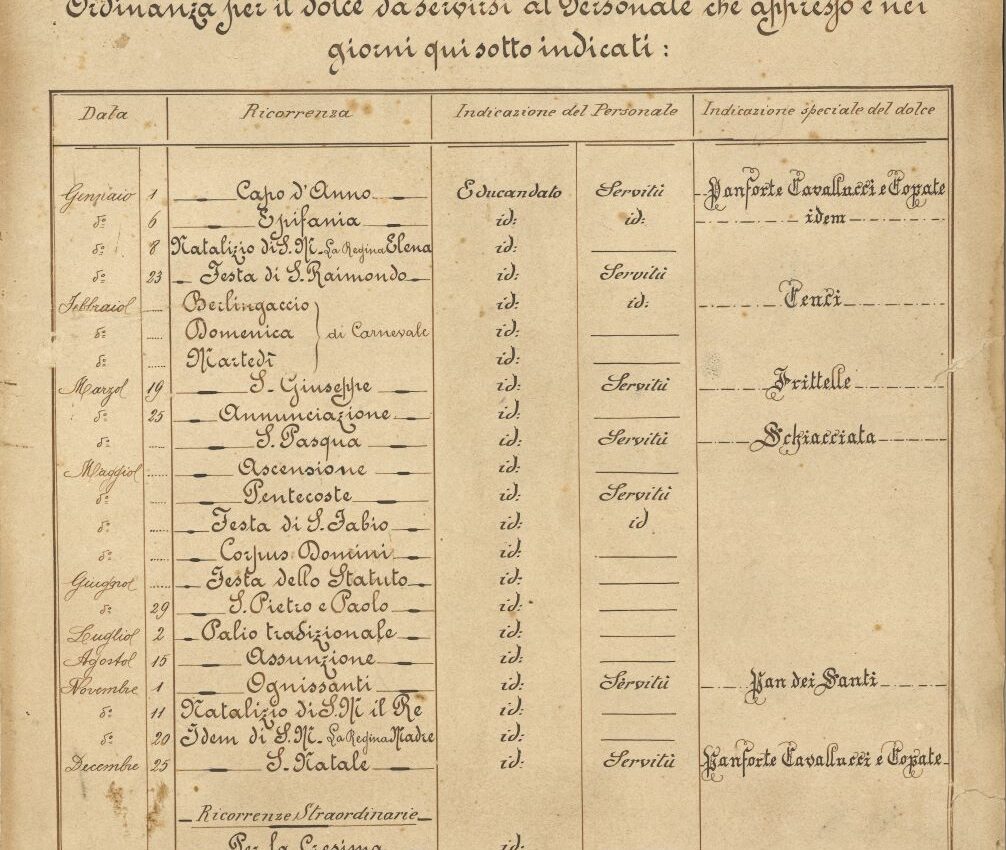 Ordinanza per il dolce da servirsi al Personale che appresso e nei
giorni qui sotto indicati :
Data Ricorrenza Indicazione del Personale Indicazione speciale del dolce
Gennaio 1 Capo d'Anno Educandato Servitù Panforte Cavallucci e Copate
do 6 Epifania id: id: idem
do 8 Natalizio di S. M. La Regina Elena id:
do 23 Festa di S. Raimondo id: Servitù
Febbraio Berlingaccio id: id: Cenci
do Domenica di Carnevale id:
do Martedì id:
Marzo 19 S. Giuseppe id: Servitù Frittelle
do 25 Annunciazione id:
do S. Pasqua id: Servitù Schiacciata
Maggio Ascensione id:
do Pentecoste id: Servitù
do Festa di S. Fabio id: id
do Corpus Domini id:
Giugno Festa dello Statuto id:
do 29 S. Pietro e Paolo id:
Luglio 2 Palio tradizionale id:
Agosto 15 Assunzione id:
Novembre 1 Ognissanti id: Servitù Pan dei Santi
do 11 Natalizio di S. M il Re id:
do 20 Idem di S. M. La Regina Madre id:
Decembre 25 S. Natale id: Servitù Panforte Cavallucci e Copate
Ricorrenze Straordinarie
Per la Cresima id: